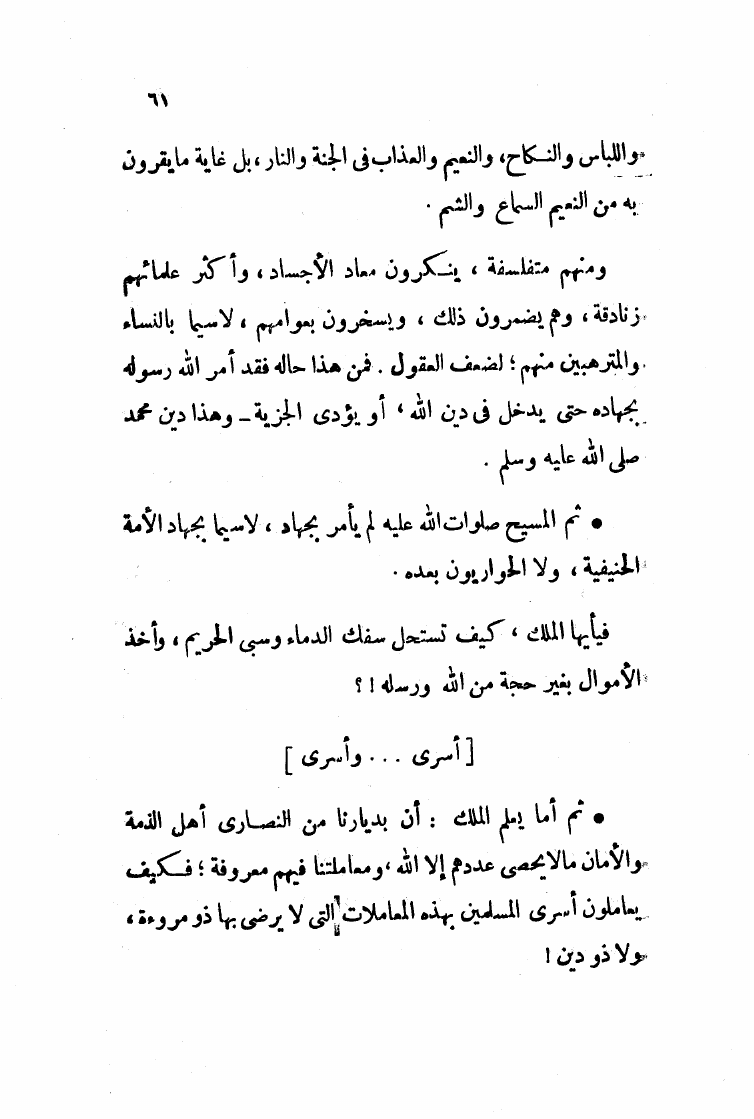 ٦١
واللباس والنكاح، والنعيم والعذاب فى الجنة والنار، بل غاية ما يقرون
به من النعيم السماع والشم .
ومنهم متفلسفة ، ينكرون معاد الأجساد ، وأكثر علمائهم
زنادقة ، وهم يضمرون ذلك ، ويسخرون بعوامهم ، لاسيما بالنساء
والمترهبين منهم ؛ لضعف العقول . فمن هذا حاله فقد أمر الله رسوله
بجهاده حتى يدخل فى دين الله ، أو يؤدى الجزية ـ وهذا دين محمد
صلى الله عليه وسلم .
• ثم المسيح صلوات الله عليه لم يأمر بجهاد ، لاسيما بجهاد الأمة
الحنيفية ، ولا الحواريون بعده .
فيأيها الملك ، كيف تستحل سفك الدماء وسبى الحريم ، وأخذ
الأموال بغير حجة من الله ورسله ! ؟
[ أسرى ... وأسرى ]
• ثم أما يعلم الملك : أن بديارنا من النصارى أهل الذمة
والأمان مالا يحصى عددهم إلا الله ، ومعاملتنا فيهم معروفة ؛ فكيف
يعاملون أسرى المسلمين بهذه المعاملات التى لا يرضى بها ذو مروءة ،
ولا ذو دين !